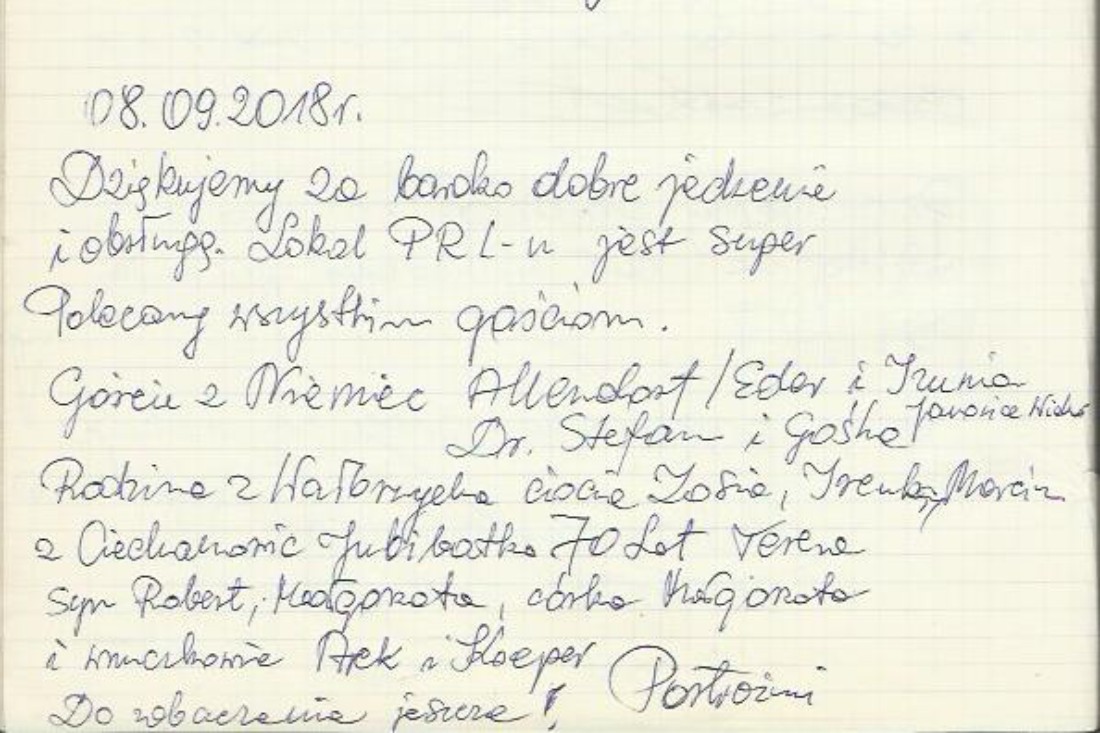 08.09.2018r.
Dziękujemy za bardzo dobre jedzenie
i obsługę. Lokal PRL-u jest super
Polecamy wszystkim gościom.
Goście z Niemiec Allendorf/Eder i Irunia
Dr. Stefan i Gośka
Rodzina z Wałbrzycha ciocia Zosia, Irenka, Marcin
z Ciechanowic Jubilatka 70 Lat Terena
syn Robert, Małgorzata, córka Małgorzata
i wnuczkowie Arek i Kacper
Do zobaczenia jeszcze!